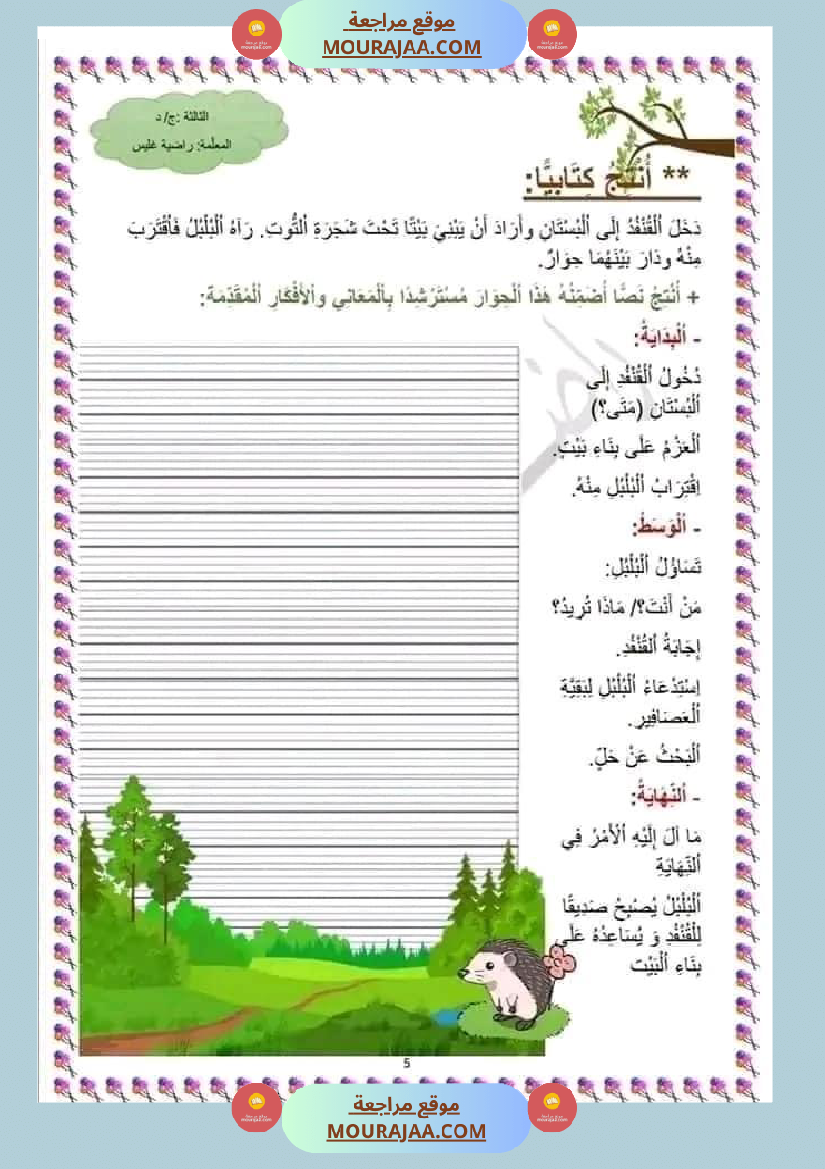 موقع مراجعة
MOURAJAA.COM
الثالثة :ج/ د
المعلّمة: راضية غليس
** أُنْتِجُ كِتَابِيًّا:
دَخَلَ ٱلْقُنْفُذُ إِلَى ٱلْبُسْتَانِ وأَرَادَ أَنْ يَبْنِيَ بَيْتًا تَحْتَ شَجَرَةِ ٱلتُّوتِ. رَآهُ ٱلْبُلْبُلُ فَٱقْتَرَبَ
مِنْهُ ودَارَ بَيْنَهُمَا حِوَارٌ.
+ أُنْتِجُ نَصًّا أُضَمِّنُهُ هَذَا ٱلْحِوَارَ مُسْتَرْشِدًا بِٱلْمَعَانِي وٱلأَفْكَارِ ٱلْمُقَدَّمَةِ:
- ٱلْبِدَايَةُ:
دُخُولُ ٱلْقُنْفُذِ إِلَى
ٱلْبُسْتَانِ (مَتَى؟)
ٱلْعَزْمُ عَلَى بِنَاءِ بَيْتٍ.
اِقْتِرَابُ ٱلْبُلْبُلِ مِنْهُ.
- ٱلْوَسَطُ:
تَسَاؤُلُ ٱلْبُلْبُلِ:
مَنْ أَنْتَ؟/ مَاذَا تُرِيدُ؟
إِجَابَةُ ٱلقُنْفُذِ.
اِسْتِدْعَاءُ ٱلْبُلْبُلِ لِبَقِيَّةِ
ٱلْعَصَافِيرِ.
ٱلْبَحْثُ عَنْ حَلٍّ.
- ٱلنِّهَايَةُ:
مَا آلَ إِلَيْهِ ٱلْأَمْرُ فِي
ٱلنِّهَايَةِ
ٱلْبُلْبُلُ يُصْبِحُ صَدِيقًا
لِلْقُنْفُذِ وَ يُسَاعِدُهُ عَلَى
بِنَاءِ ٱلْبَيْتِ
5
موقع مراجعة
MOURAJAA.COM